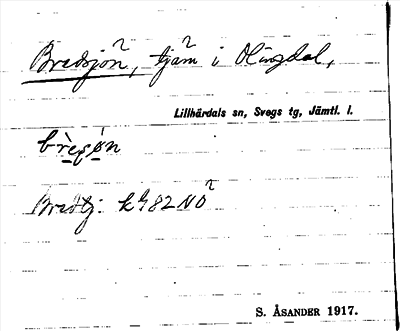 Bradsjön², tjärn² i Olingdal,
Lillhärdals sn, Svegs tg, Jämtl. l.
Bradtj: k 4 82 NO²
S. ÅSANDER 1917.